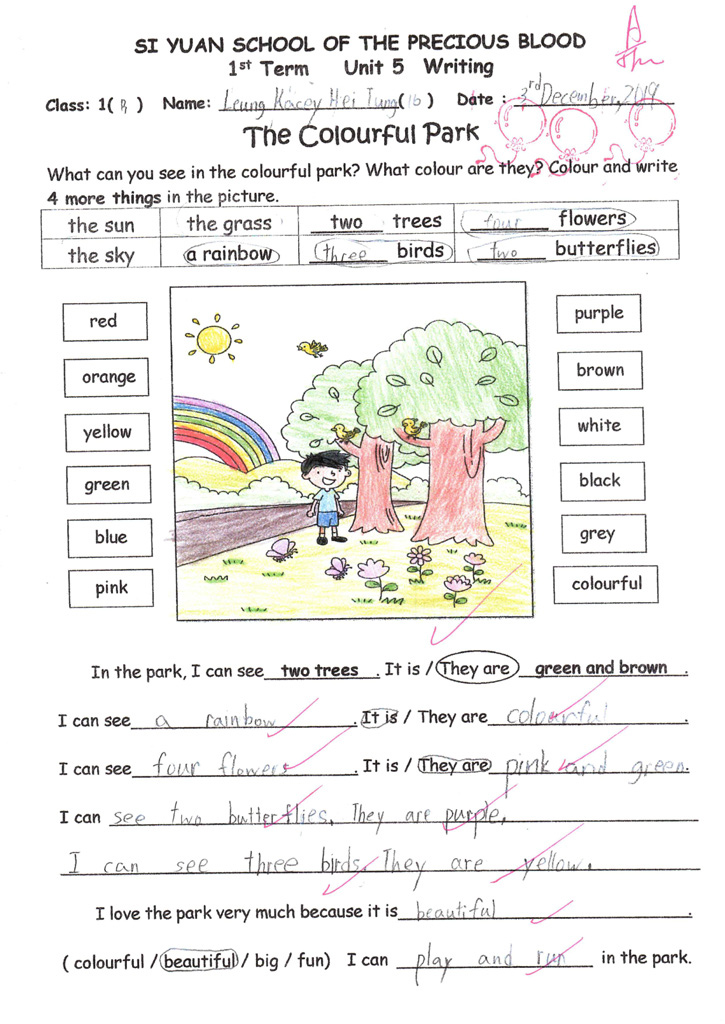 A
SI YUAN SCHOOL OF THE PRECIOUS BLOOD
1st Term Unit 5 Writing
Class: 1( R ) Name: Leung Kacey Hei Tung(16) Date : 3rd December, 2019
The Colourful Park
What can you see in the colourful park? What colour are they? Colour and write
4 more things in the picture.
the sun the grass two trees four flowers
the sky a rainbow three birds two butterflies
red purple
orange brown
yellow white
green black
blue grey
pink colourful
In the park, I can see two trees . It is / They are green and brown .
I can see a rainbow . It is / They are colourful .
I can see four flowers . It is / They are pink and green.
I can see two butterflies. They are purple.
I can see three birds. They are yellow.
I love the park very much because it is beautiful .
( colourful / beautiful / big / fun) I can play and run in the park.